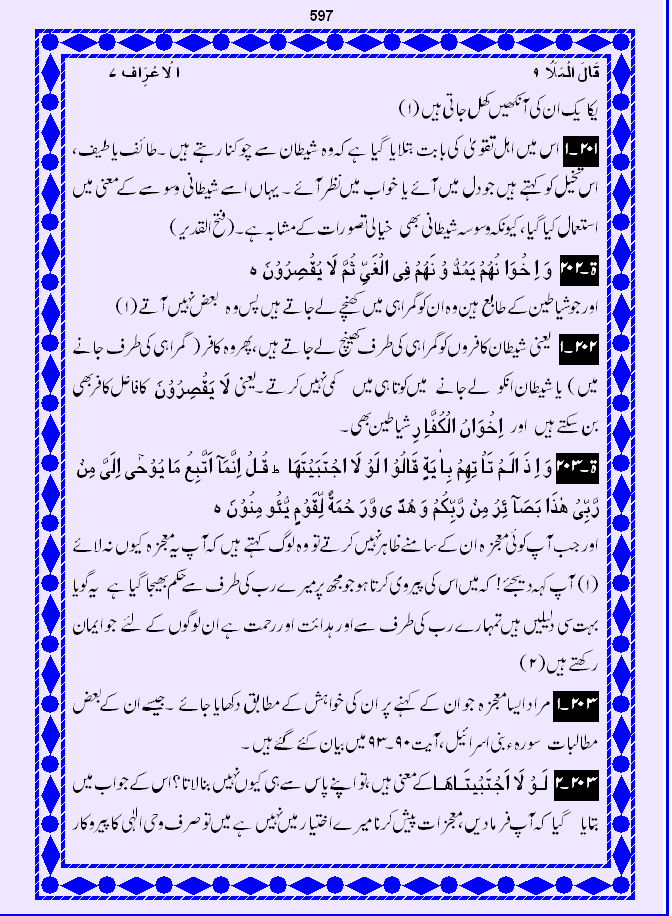 597
قَالَ الْمَلَاُ ۹ الْاعْرَاف ۷
یکایک ان کی آنکھیں کھل جاتی ہیں (۱)
۲۰۱۔۱ اس میں اہل تقویٰ کی بابت بتلایا گیا ہے کہ وہ شیطان سے چوکنا رہتے ہیں ۔ طائف یا طیف،
اس تخیل کو کہتے ہیں جو دل میں آئے یا خواب میں نظر آئے ۔ یہاں اسے شیطانی وسوسے کے معنی میں
استعمال کیا گیا، کیونکہ وسوسہ شیطانی بھی خیالی تصورات کے مشابہ ہے۔ (فتح القدیر)
ۃ۔۲۰۲ وَاِخْوَانُهُمْ يَمُدُّوْنَهُمْ فِى الْغَىِّ ثُمَّ لَا يُقْصِرُوْنَ ہ
اور جو شیاطین کے طابع ہین وہ ان کو گمراہی میں کھنچے لے جاتے ہیں پس وہ بعض نہیں آتے (۱)
۲۰۲۔۱ یعنی شیطان کافروں کو گمراہی کی طرف کھینچ لے جاتے ہیں، پھر وہ کافر ( گمراہی کی طرف جانے
میں ) یا شیطان انکو لے جانے میں کوتاہی میں کمی نہیں کرتے۔ یعنی لَا يَقْصِرُوْنَ کا فاعل کافر بھی
بن سکتے ہیں اور اِخْوَانُ الْكُفَّارِ شیاطین بھی۔
ۃ۔۲۰۳ وَاِذَا لَمْ تَاْتِهِمْ بِاٰيَةٍ قَالُوْا لَوْ لَا اجْتَبَيْتَهَا ط قُلْ اِنَّمَآ اَتَّبِعُ مَا يُوْحٰٓى اِلَىَّ مِنْ
رَّبِّىْ هٰذَا بَصَآئِرُ مِنْ رَّبِّكُمْ وَهُدًى وَّرَحْمَةٌ لِّقَوْمٍ يُّئْومِنُوْنَ ہ
اور جب آپ کوئی معجزہ ان کے سامنے ظاہر نہیں کرتے تو وہ لوگ کہتے ہیں کہ آپ یہ معجزہ کیوں نہ لائے
(۱) آپ کہہ دیجئے! کہ میں اس کی پیروی کرتا ہو جو مجھ پر میرے رب کی طرف سے حکم بھیجا گیا ہے یہ گویا
بہت سی دلیلیں ہیں تمہارے رب کی طرف سے اور ہدائت اور رحمت ہے ان لوگوں کے لئے جو ایمان
رکھتے ہیں (۲)
۲۰۳۔۱ مراد ایسا معجزہ جو ان کے کہنے پر ان کی خواہش کے مطابق دکھایا جائے ۔ جیسے ان کے بعض
مطالبات سورہ ء بنی اسرائیل، آیت ۹۰۔۹۳ میں بیان کئے گئے ہیں ۔
۲۰۳۔۲ لَوْ لَا اَجْتَبْيتَاهَا کے معنی ہیں، تو اپنے پاس سے ہی کیوں نہیں بنا لاتا؟ اس کے جواب میں
بتایا گیا کہ آپ فرما دیں، معجزات پیش کرنا میرے اختیار میں نہیں ہے میں تو صرف وحی الٰہی کا پیروکار